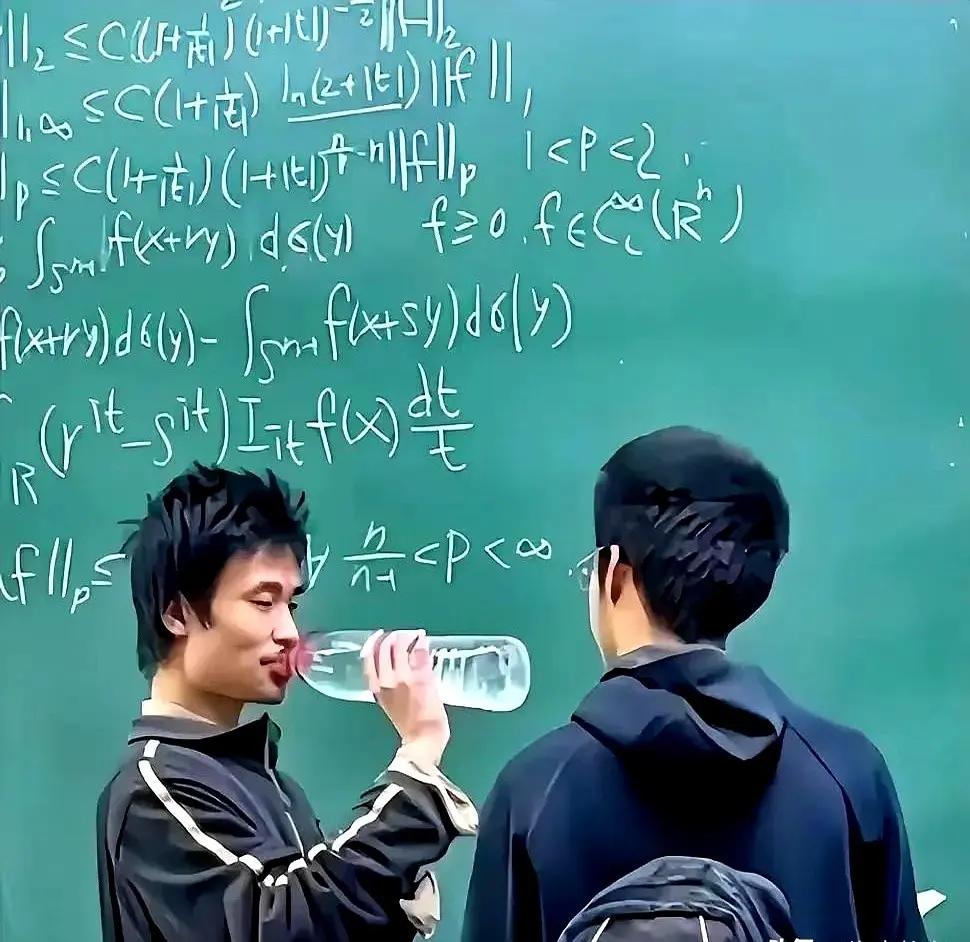 ||₂ ≤ C(1+1/|t|)(1+|t|)^{-n/2}||f||₂
||_{1,∞} ≤ C(1+1/|t|) ln(2+|t|)||f||₁
||_p ≤ C(1+1/|t|)(1+|t|)^{n/p-n}||f||_p 1<p<2.
∫_{S^{n-1}} f(x+ry) dσ(y) f≥0, f∈C_c^∞(R^n)
f(x+ry)dσ(y) - ∫_{S^{n-1}} f(x+sy)dσ(y)
∫_R (r^{it}-s^{it}) I_{it} f(x) dt/t
f||_p ≤ n/(n-1) < p < ∞